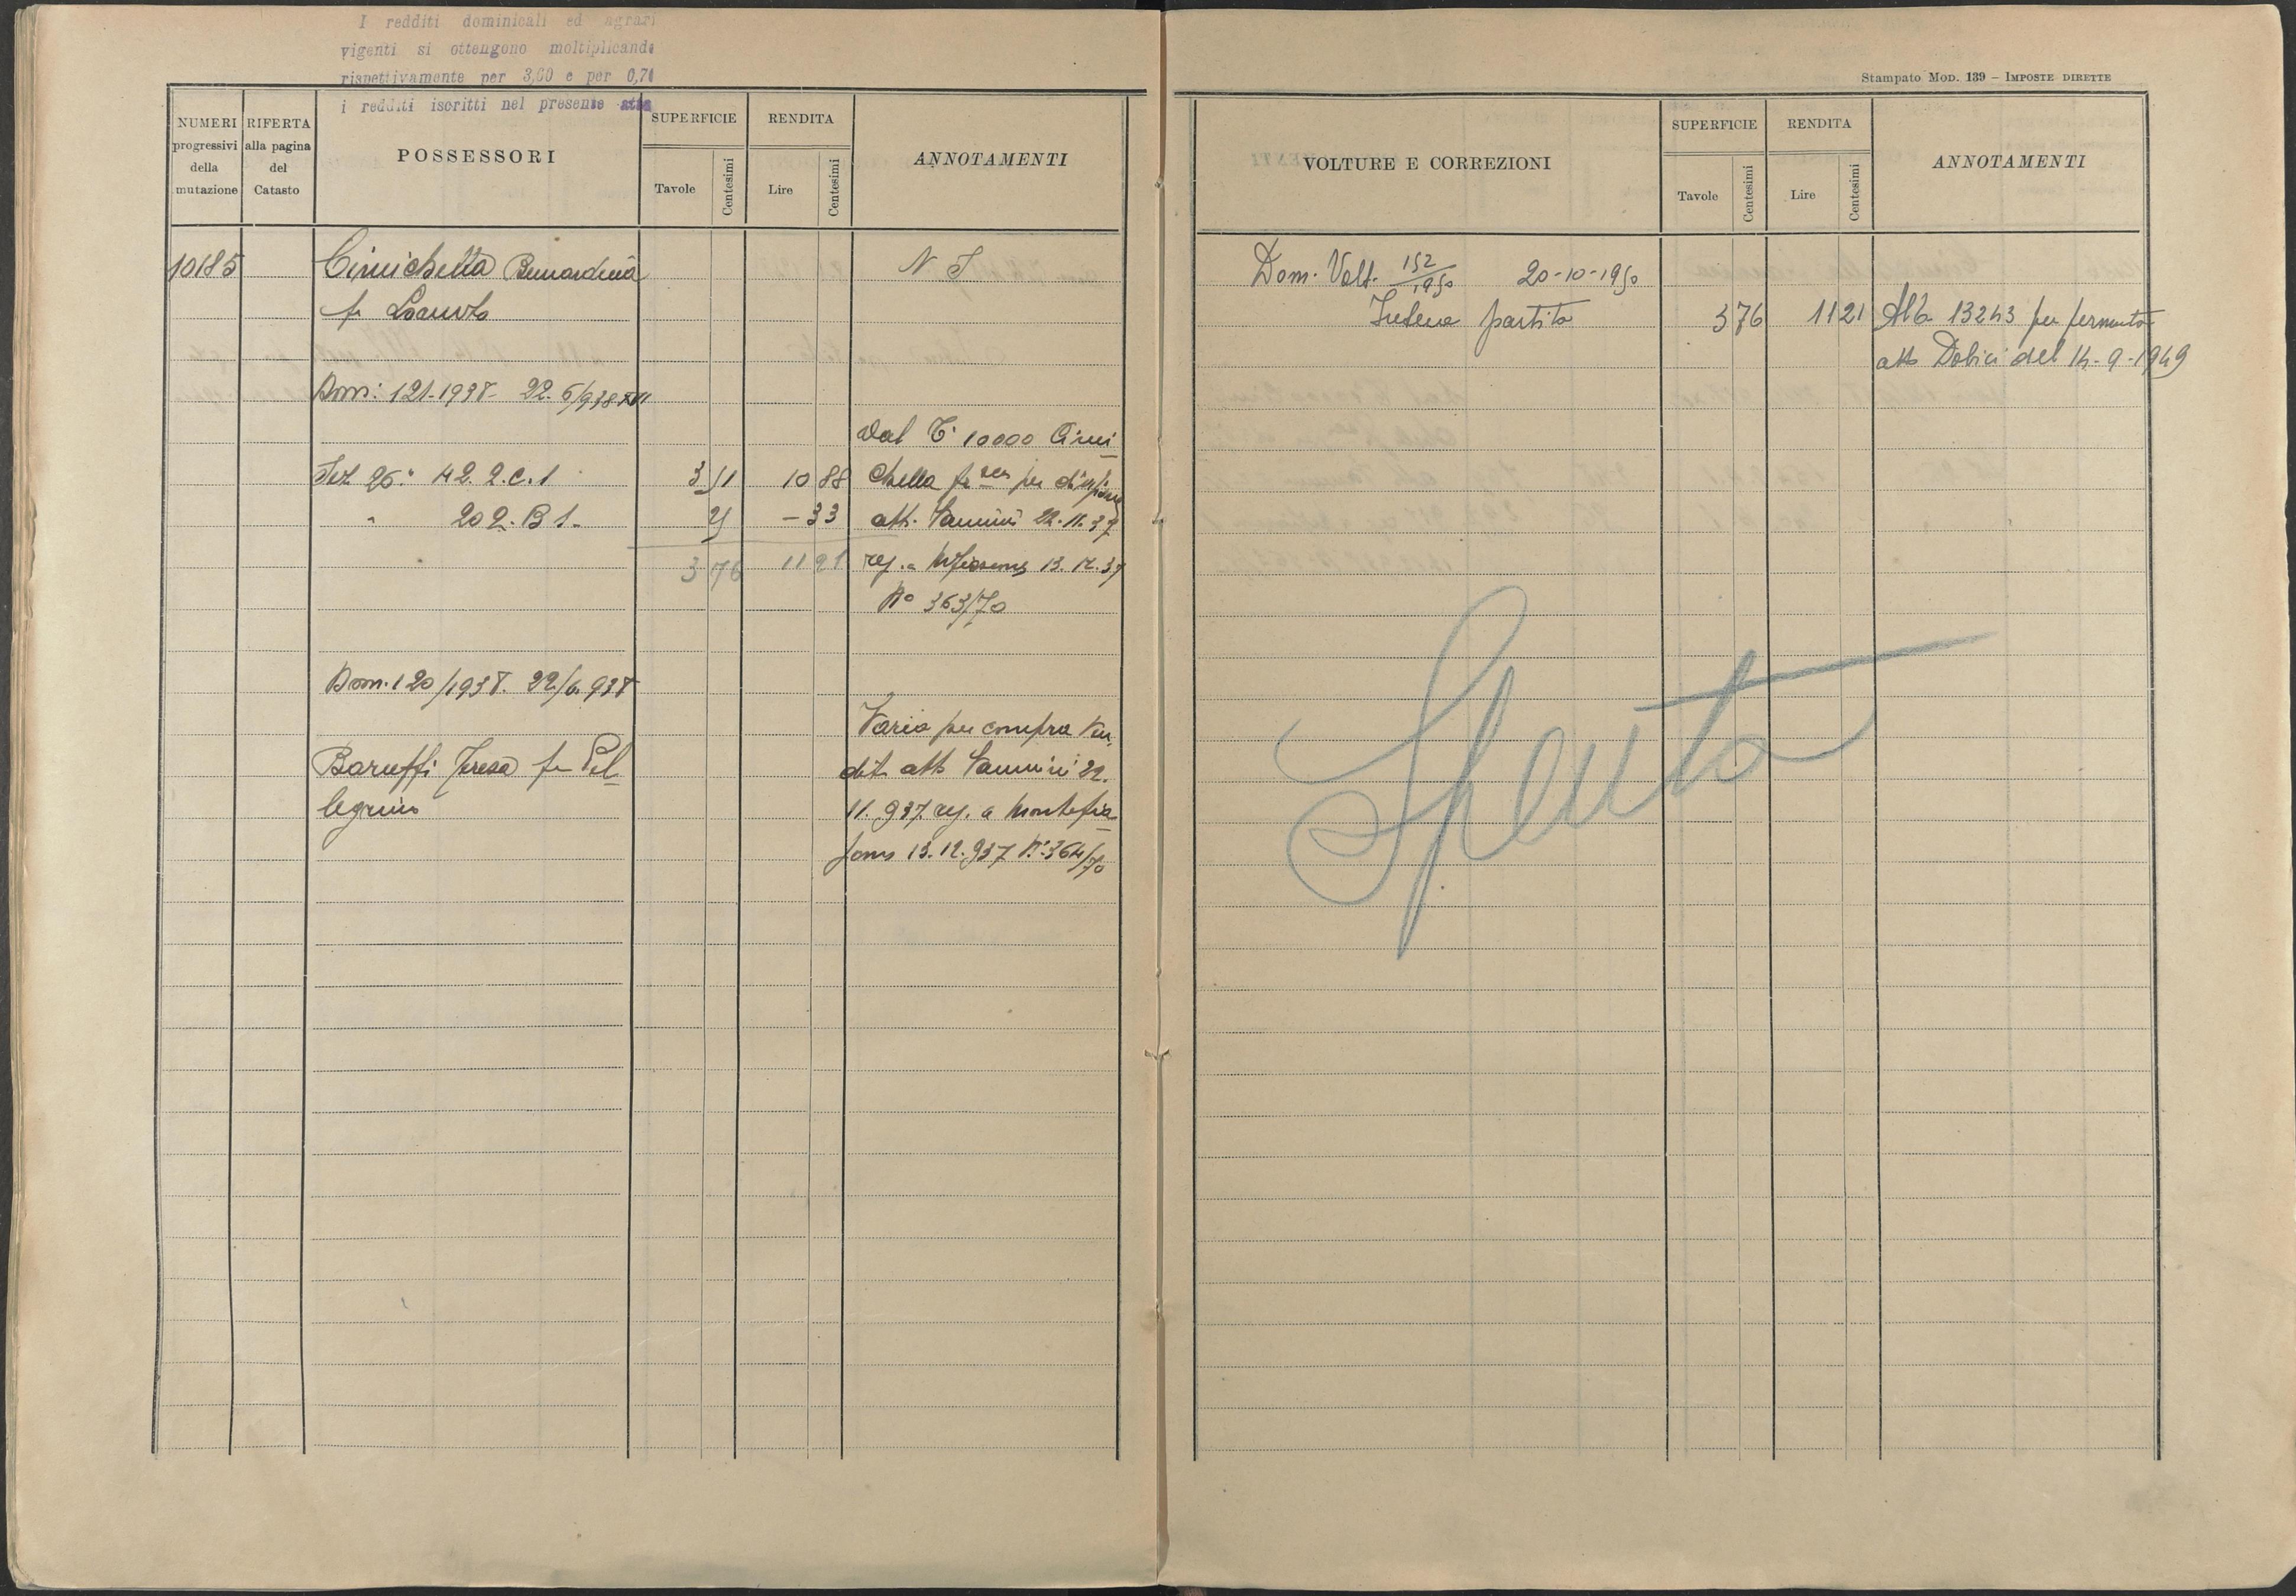 I redditi dominicali ed agrari
vigenti si ottengono moltiplicando
rispettivamente per 3,60 e per 0,70
i redditi iscritti nel presente atto
NUMERI progressivi della mutazione
RIFERTA alla pagina del Catasto
POSSESSORI
SUPERFICIE
Tavole
Centesimi
RENDITA
Lire
Centesimi
ANNOTAMENTI
10185
Cimichella Bernardina
fu Loreto
N
Dom: 121-1938- 22-6/938 XVI
Dal 10000 Cimi
Sez 26: 42.2.C.1 3 51 10 88 chella per
" 202.B1- 25 -33 att. Vannini 22.11.37
3 76 11 21 reg. a 13.12.37
No 363/70
Dom. 120/1938. 22/6.938
Varia per compra ven
Baruffi Teresa fu Pel
dit att Vannini 22.
legrino
11.937 reg. a Montefia
scone 13.12.937 N: 364/70
Stampato Mod. 139 – Imposte dirette
VOLTURE E CORREZIONI
SUPERFICIE
Tavole
Centesimi
RENDITA
Lire
Centesimi
ANNOTAMENTI
Dom. Volt. 152/1950 20-10-1950
Intera partita 3 76 11 21 Alla 13243 per permuta
atto Dobici del 14-9-1949
Spenta